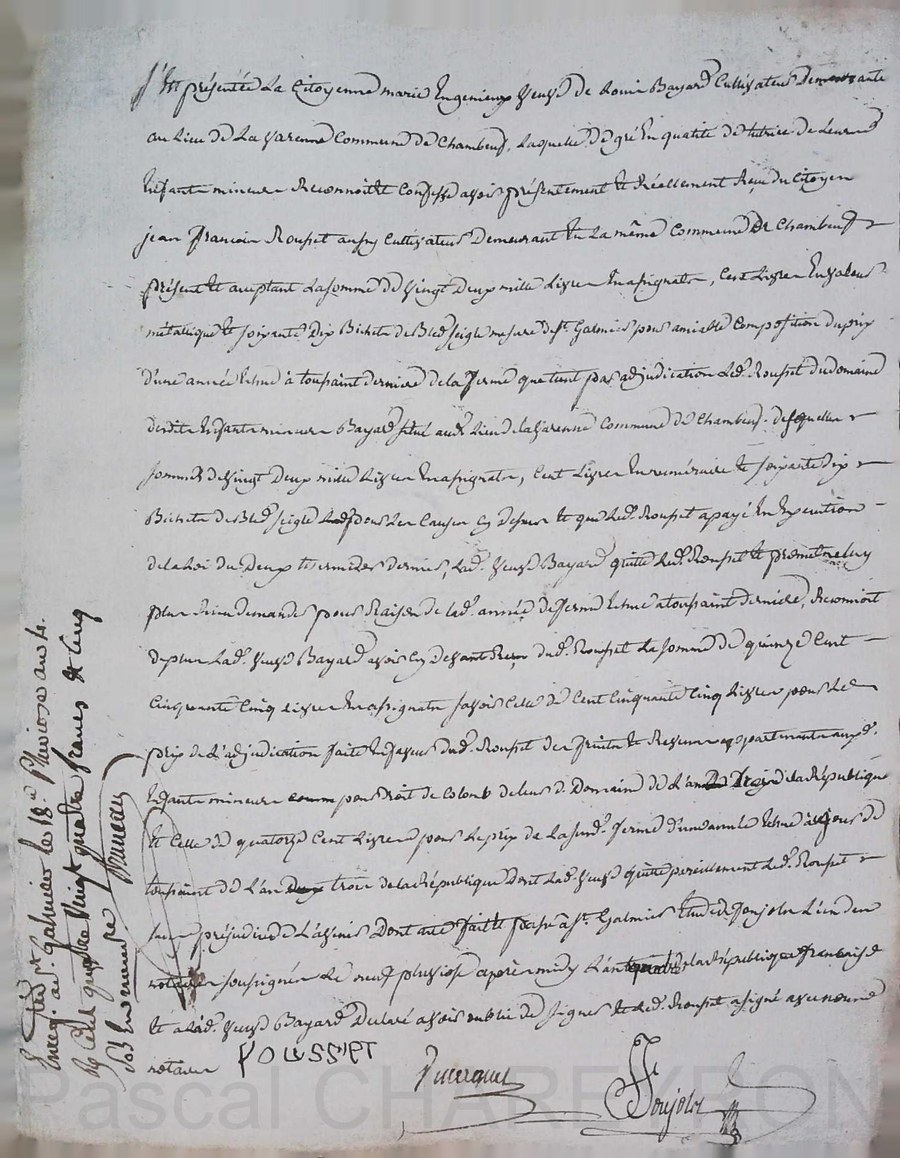 S'est présentée La Citoyenne marie Engenieux Veuve de Louis Bayard Cultivateur Demeurante
au Lieu de La Varenne Commune de Chambeuf, Laquelle de gré En qualité de tutrice de Leurs
Enfants mineurs Reconnoit et Confesse avoir présentement et Réellement Reçu du Citoyen
jean François Rousset aussy Cultivateur Demeurant En La même Commune de Chambeuf
présent et acceptant La somme de Vingt Deux mille Livres En assignats, Cent Livres En valeur
métallique et soixante Dix Bichets de Bled seigle mesure de St. Galmier pour amiable Composition du prix
d'une année Echue à toussaint derniere de la ferme que tient par adjudication Led. Rousset du domaine
desdits Enfants mineurs Bayard situé aud. Lieu de la Varenne Commune de Chambeuf. desquelles
sommes de Vingt Deux mille Livres En assignats, Cent Livres En numéraire et soixante Dix
Bichets de Bled seigle pour Les Causes Cy Dessus et que Led. Rousset a payé En Execution
de la Loi du Deux thermidor dernier, Lad. Veuve Bayard quitte Led. Rousset et promet ne luy
plus Rien demander pour Raison de Lad. année de ferme Echue a toussaint derniere, Reconnoit
de plus Lad. Veuve Bayard avoir Cy Devant Reçu dud. Rousset La somme de quinze Cent
Cinquante Cinq Livres En assignats savoir Celle de Cent Cinquante Cinq Livres pour Le
prix de L'adjudication faite En faveur dud. Rousset des fruits et Revenus appartenants auxd.
Enfants mineurs pour Droit de Colomb de leur d. Domaine de L'an trois de la République
et Celle de quatorze Cent Livres pour Le prix de La susd. ferme d'une année Echue à jour de
toussaint de L'an trois de la République Dont Lad. Veuve quitte pareillement Led. Rousset
sans préjudice de L'avenir Dont acte fait et passé à St. Galmier Etude de Ponjolon L'un des
notaires soussignés Le neuf pluviose après midy L'an quatre de la République française
et a Lad. Veuve Bayard Déclaré avoir oublié de signer et Led. Rousset a signé avec nous
notaires
ROUSSET
Ponjolon
Enreg. a St. Galmier le 18 Pluviose an 4.
Rç Cent quatre Vingt quatre francs et Cinq
sols En numéraire
Pascal CHAREYRON